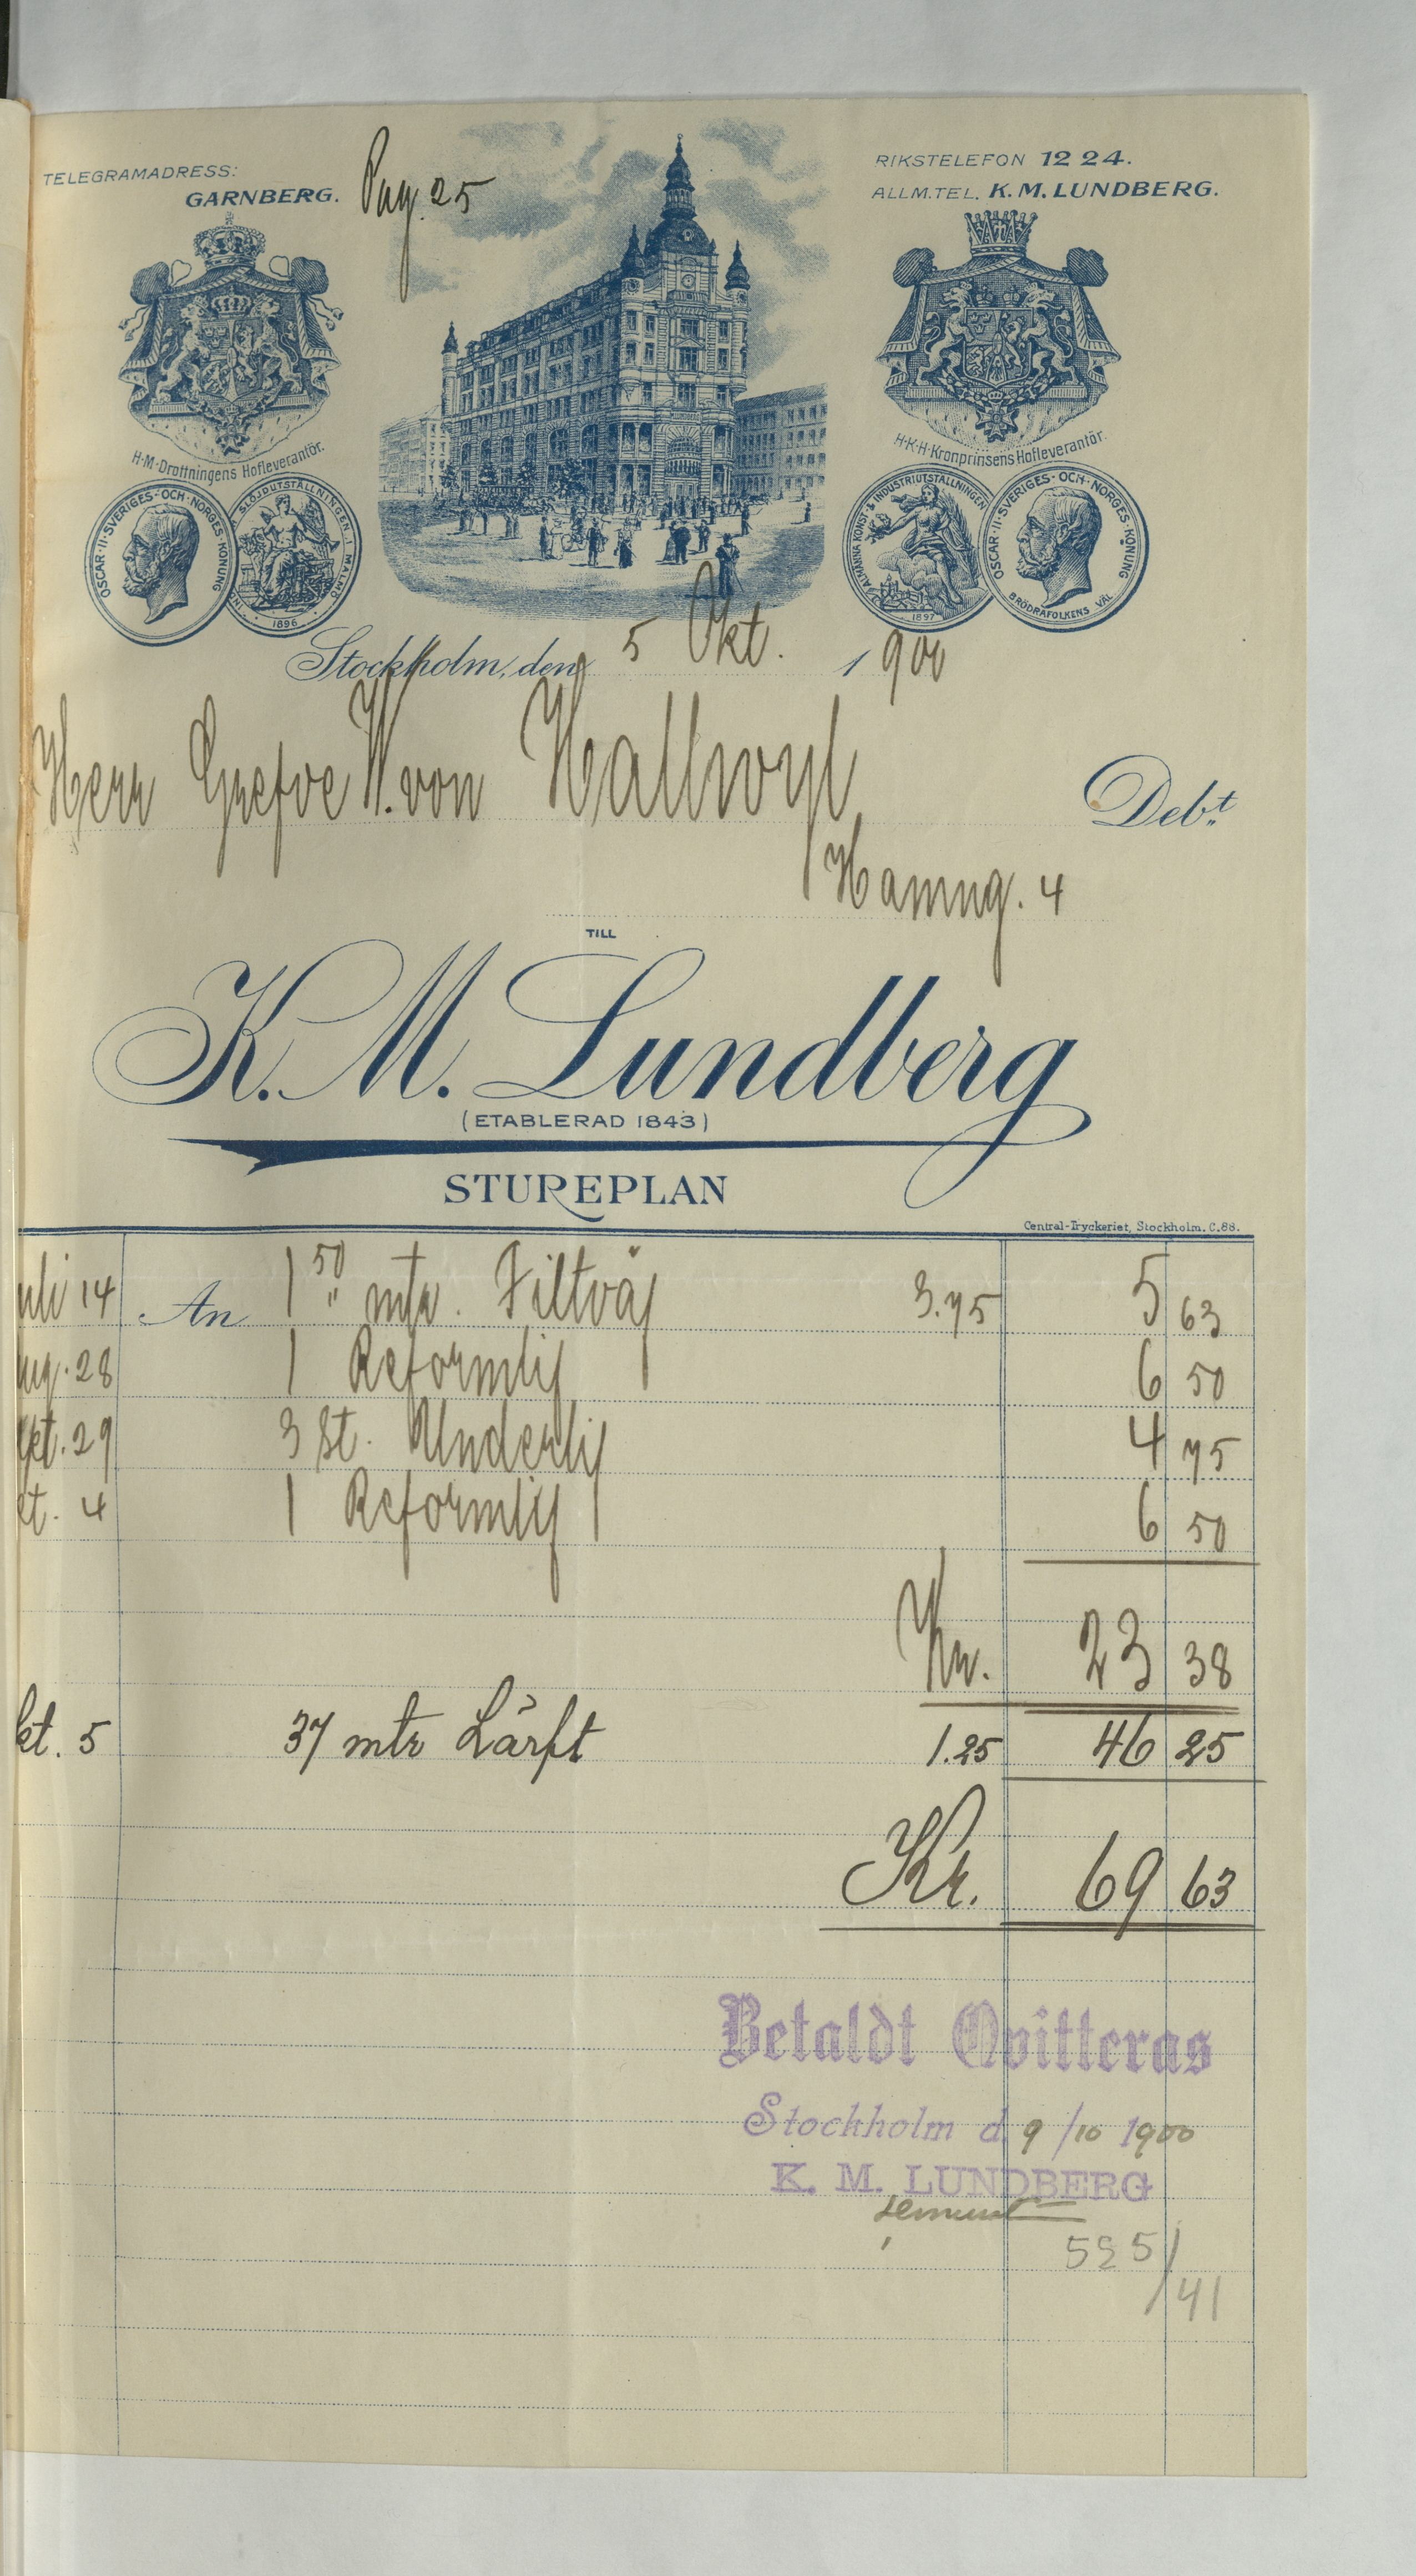 TELEGRAMADRESS:
GARNBERG.
Pag. 25
RIKSTELEFON 12 24.
ALLM.TEL. K. M. LUNDBERG.
H·M·Drottningens Hofleverantör.
H·K·H·Kronprinsens Hofleverantör.
OSCAR·II·SVERIGES·OCH·NORGES·KONUNG
SLÖJDUTSTÄLLNINGEN I MALMÖ
1896
ALMÄNNA KONST- & INDUSTRIUTSTÄLLNINGEN
1897
OSCAR·II·SVERIGES·OCH·NORGES·KONUNG
BRÖDRAFOLKENS VÄL
Stockholm, den 5 Okt. 1900
Herr Grefve W. von Hallwyl
Debt
Hamng. 4
TILL
K. M. Lundberg
(ETABLERAD 1843)
STUREPLAN
Central-Tryckeriet, Stockholm. C.88.
uli 14 An 1 50 " mtr. Filtväf 3.75 5 63
ug. 28 1 Reformlif 6 50
pt. 29 3 St. Underlif 4 75
kt. 4 1 Reformlif 6 50
Kr. 23 38
kt. 5 37 mtr Lärft 1.25 46 25
Kr. 69 63
Betaldt Qvitteras
Stockholm d. 9/10 1900
K. M. LUNDBERG
525/41